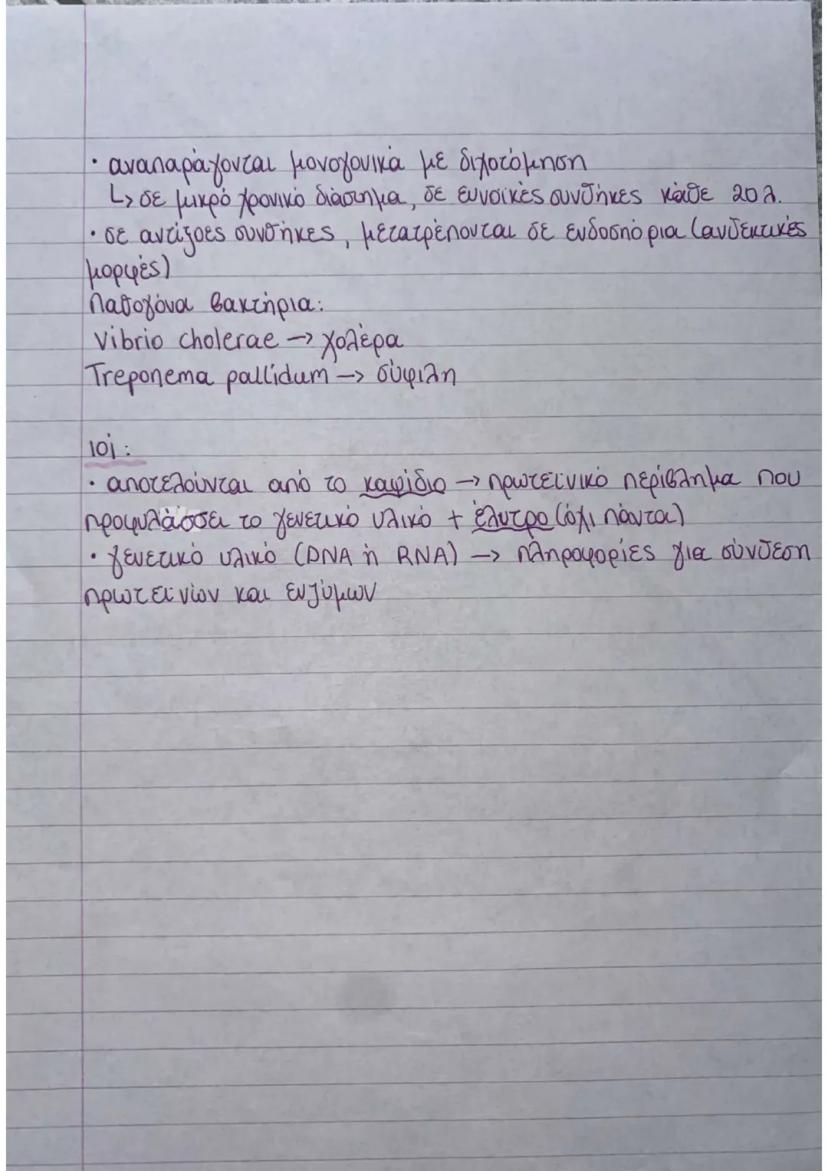 · αναπαράγονται μονογονικά με διχοτόμηση
↳ σε μικρό χρονικό διάστημα, σε ευνοϊκές συνθήκες κάθε 20λ.
· σε αντίξοες συνθήκες, μετατρέπονται σε ενδοσπόρια (ανθεκτικές
μορφές)
Παθογόνα βακτήρια:
Vibrio cholerae → χολέρα
Treponema pallidum → σύφιλη
ιοί:
· αποτελούνται από το καψίδιο → πρωτεϊνικό περίβλημα που
προφυλάσσει το γενετικό υλικό + έλυτρο (όχι πάντα)
· γενετικό υλικό (DNA ή RNA) → πληροφορίες για σύνθεση
πρωτεϊνίων και ενζύμων